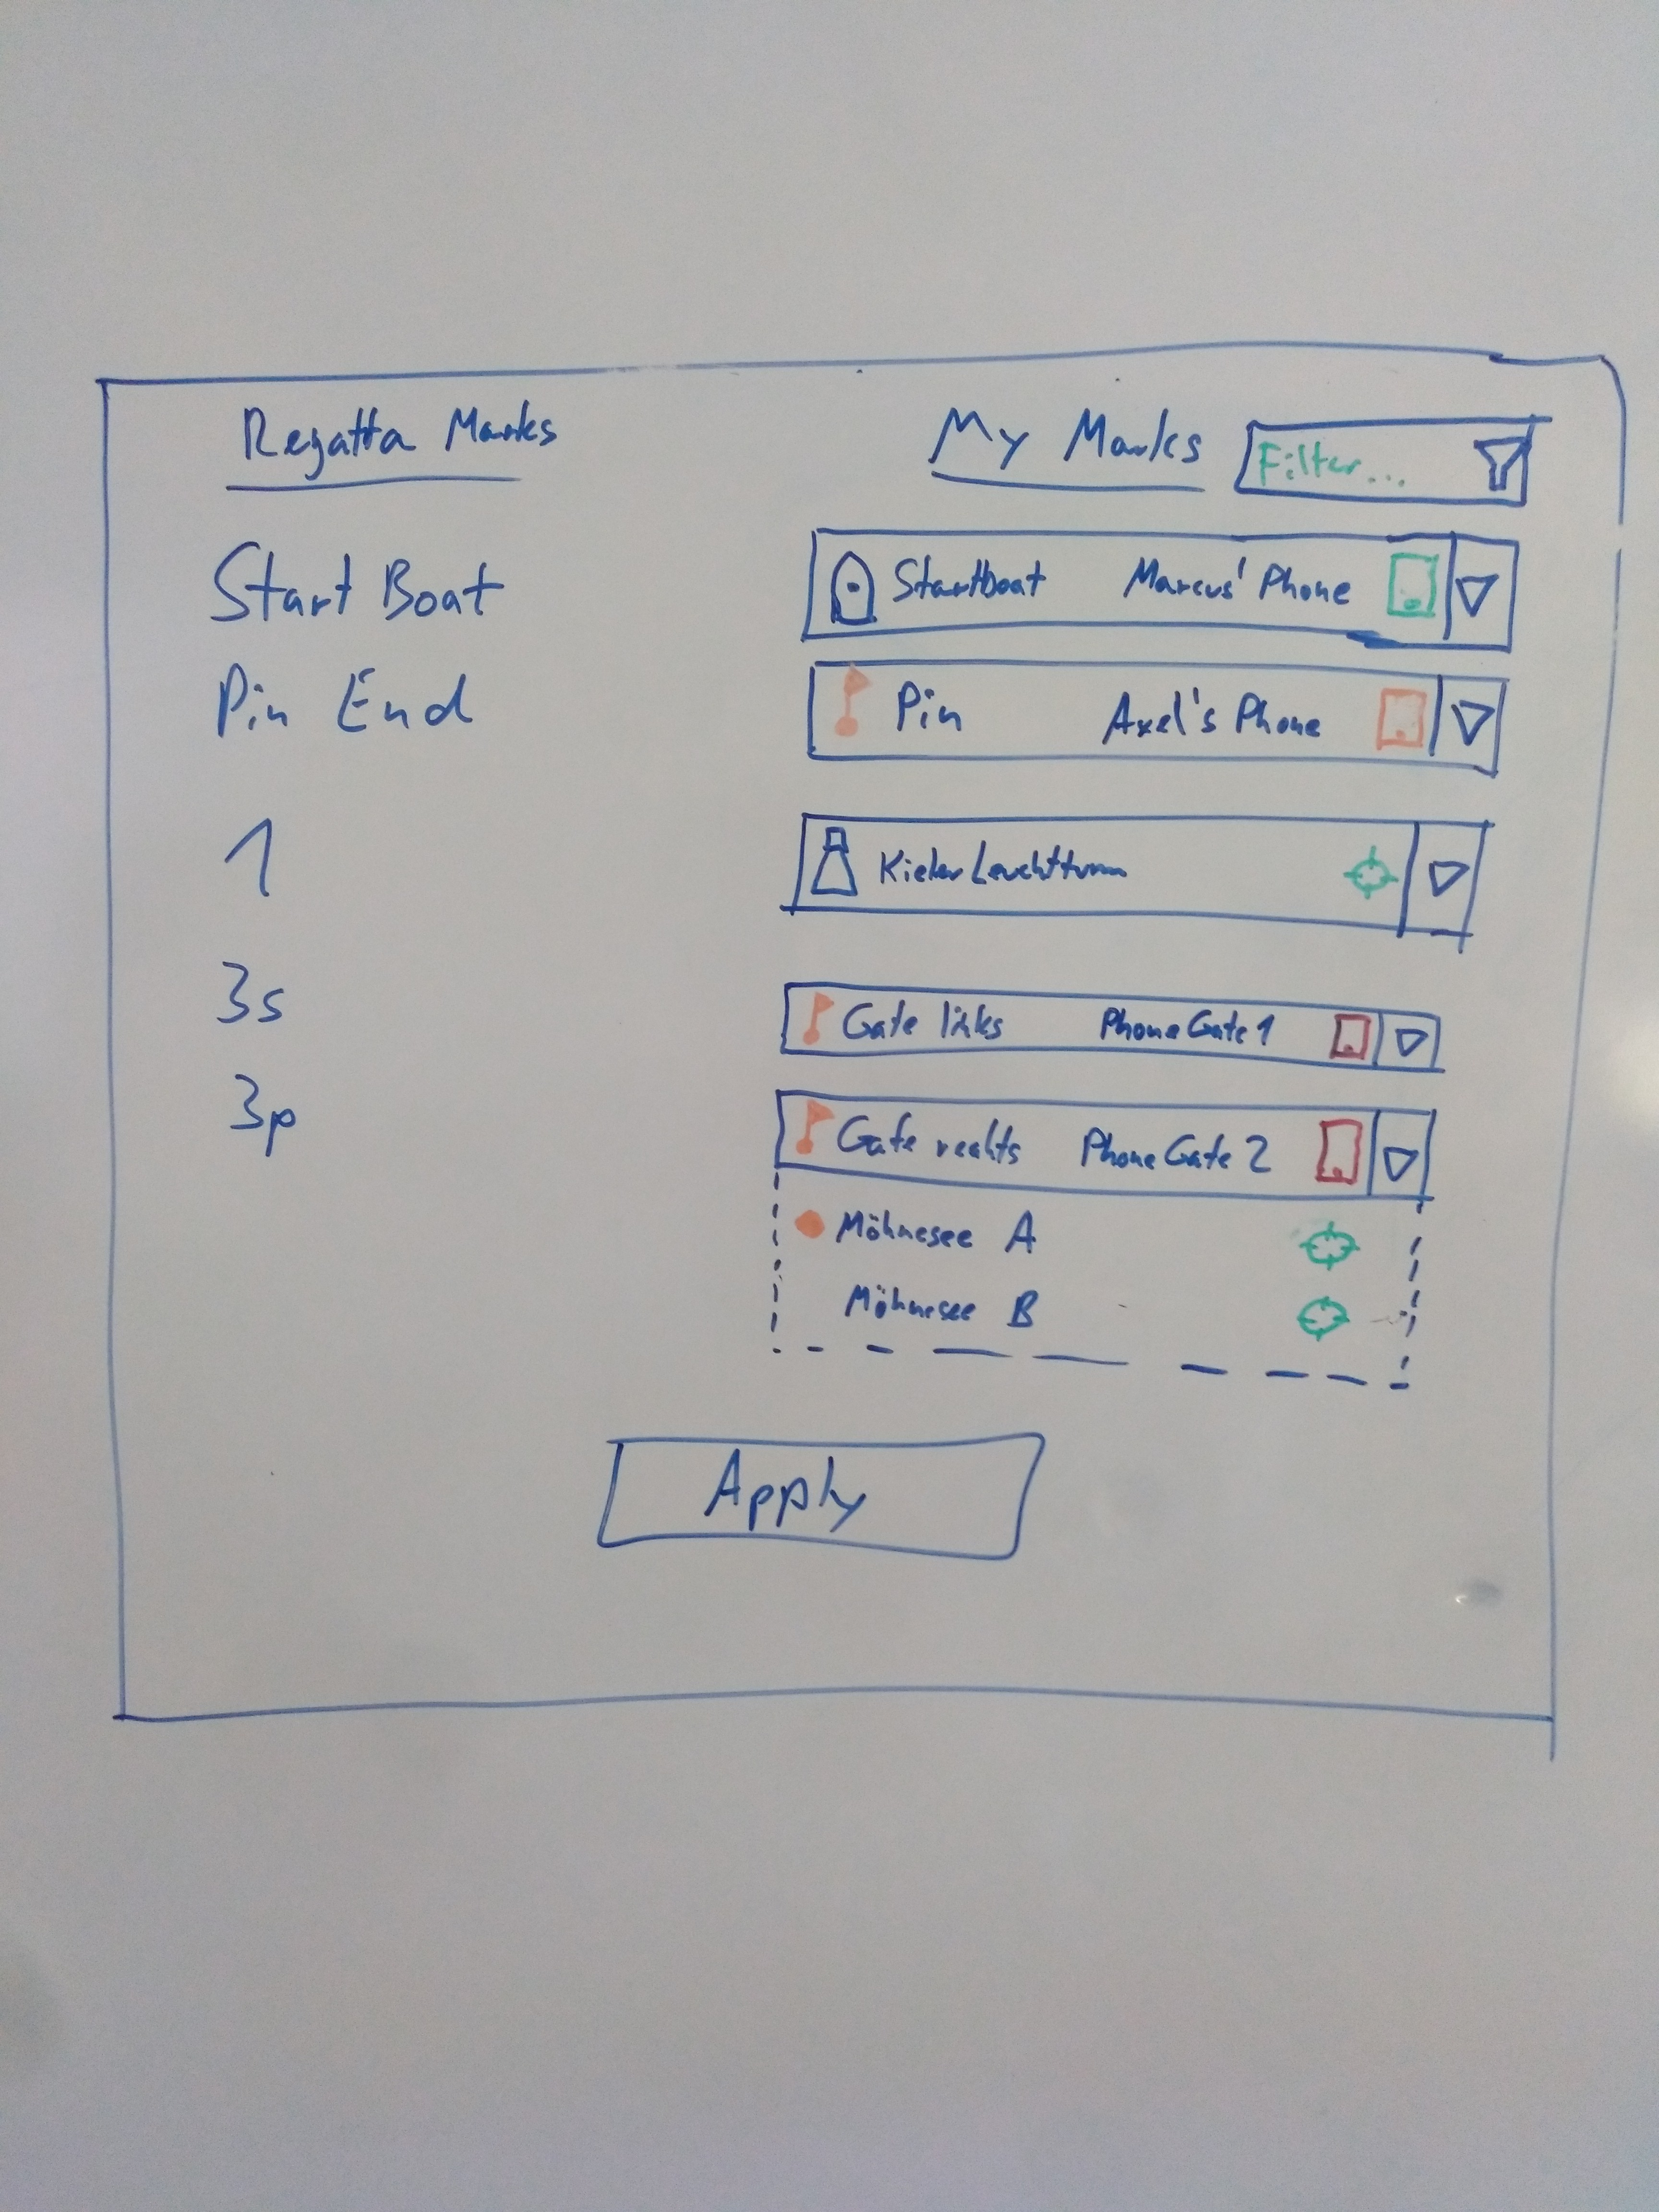 Regatta Marks
My Marks Filter...
Start Boat
Startboat Marcus' Phone
Pin End
Pin Axel's Phone
1
Kieler Leuchtturm
3s
Gate links Phone Gate 1
3p
Gate rechts Phone Gate 2
Möhnesee A
Möhnesee B
Apply